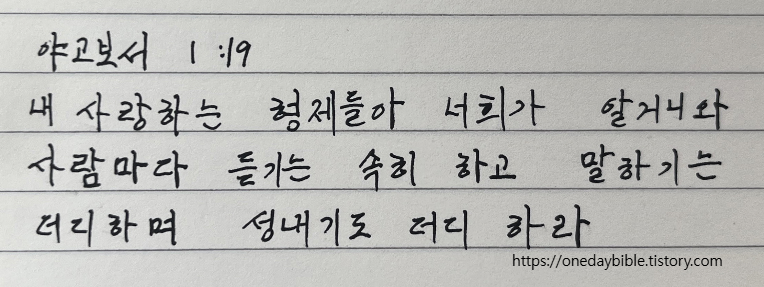 야고보서 1:19
내 사랑하는 형제들아 너희가 알거니와
사람마다 듣기는 속히 하고 말하기는
더디하며 성내기도 더디 하라
https://onedaybible.tistory.com